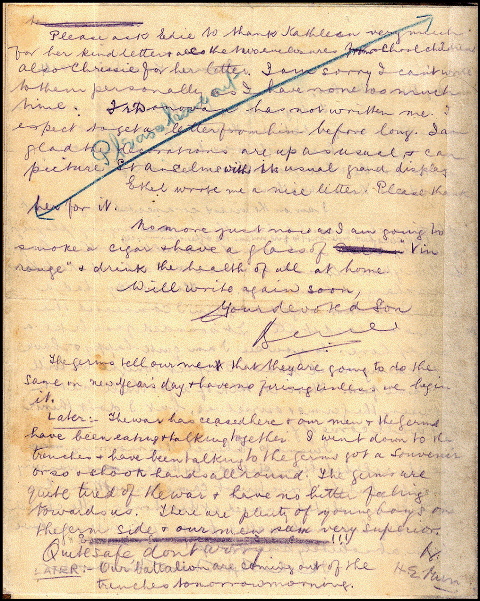 Please ask Edie to thank Kathleen very much
for her kind letter & also the two enclosures from school children
also Chrissie for her letter. I am sorry I can't write
to them personally as I have none too much
time. has not written me. I
expect to get a letter from him before long. I am
glad the decorations are up as usual & can
picture St Anselms with its usual grand display
Ethel wrote me a nice letter. Please thank
her for it.
Please leave out
No more just now as I am going to
smoke a cigar & have a glass of "Vin
rouge" & drink the health of all at home.
Will write again soon,
Your devoted Son
The germs tell our men that they are going to do the
same on new years day & have no firing unless we begin
it.
Later:- The war has ceased here & our men & the germs
have been eating & talking together. I went down to the
trenches & have been talking to the germs got a souvenir
or so & shook hands all round. The germs are
quite tired of the war & have no bitter feelings
towards us. There are plenty of young boys on
the germ side & our men seem very superior.
Quite safe dont worry !!!
LATER:- Our Battalion are coming out of the
trenches tomorrow morning.